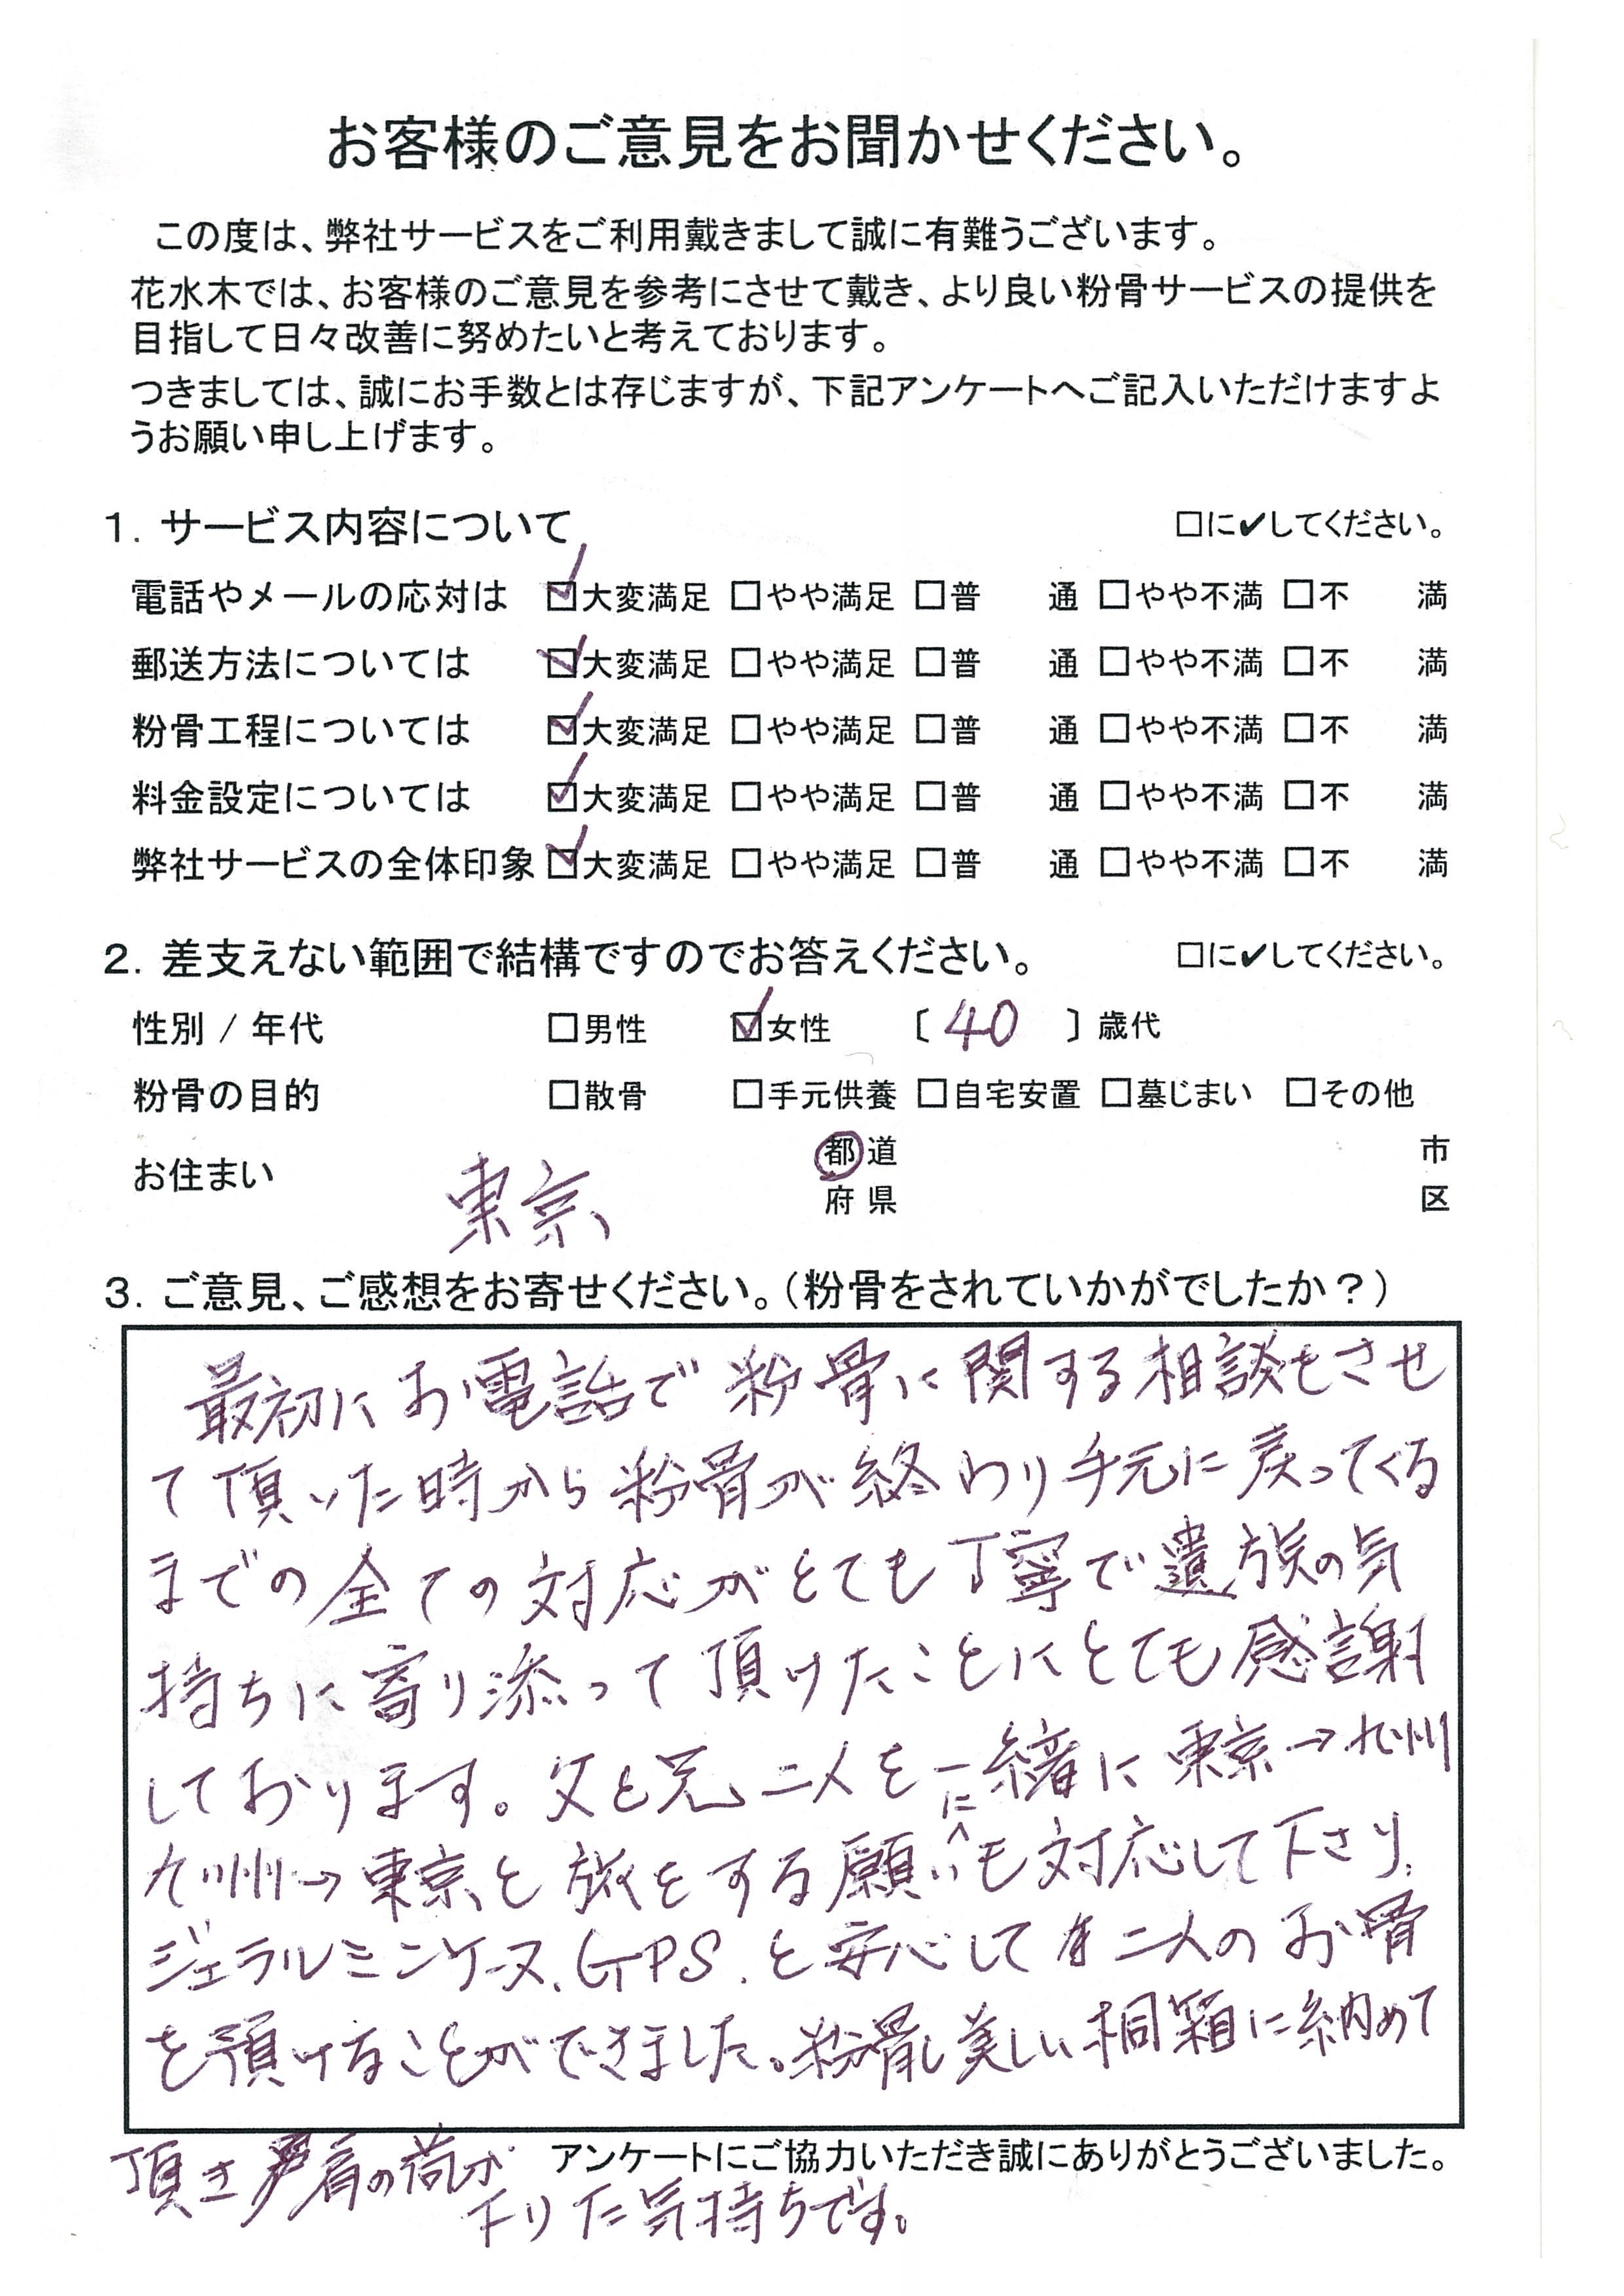 お客様のご意見をお聞かせください。
この度は、弊社サービスをご利用戴きまして誠に有難うございます。
花水木では、お客様のご意見を参考にさせて戴き、より良い粉骨サービスの提供を
目指して日々改善に努めたいと考えております。
つきましては、誠にお手数とは存じますが、下記アンケートへご記入いただけますよ
うお願い申し上げます。
1. サービス内容について □に✔してください。
電話やメールの応対は ☑大変満足 □やや満足 □普 通 □やや不満 □不 満
郵送方法については ☑大変満足 □やや満足 □普 通 □やや不満 □不 満
粉骨工程については ☑大変満足 □やや満足 □普 通 □やや不満 □不 満
料金設定については ☑大変満足 □やや満足 □普 通 □やや不満 □不 満
弊社サービスの全体印象 ☑大変満足 □やや満足 □普 通 □やや不満 □不 満
2. 差支えない範囲で結構ですのでお答えください。 □に✔してください。
性別 / 年代 □男性 ☑女性 〔 40 〕歳代
粉骨の目的 □散骨 □手元供養 □自宅安置 □墓じまい □その他
お住まい 東京 都道府県 市区
3. ご意見、ご感想をお寄せください。（粉骨をされていかがでしたか？）
最初にお電話で粉骨に関する相談をさせ
て頂いた時から粉骨が終わり手元に戻ってくる
までの全ての対応がとても丁寧で遺族の気
持ちに寄り添って頂けたことにとても感謝
しております。父と兄二人を一緒に東京→九州
九州→東京と旅をする願いにも対応して下さり、
ジェラルミンケース、GPS、と安心して二人のお骨
を預けることができました。粉骨し美しい桐箱に納めて
頂き肩の荷が
アンケートにご協力いただき誠にありがとうございました。
下りた気持ちです。